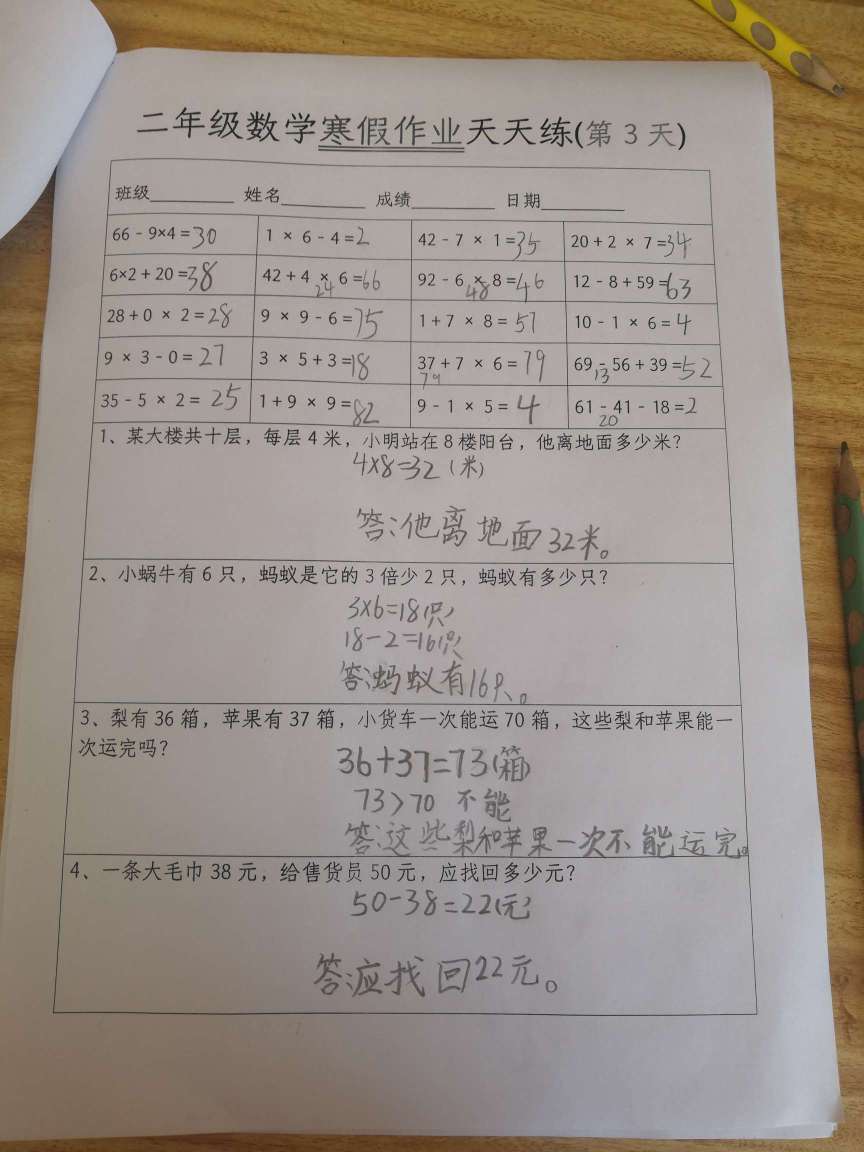 二年级数学寒假作业天天练(第 3 天)
班级________ 姓名________ 成绩________ 日期________
66 - 9×4 = 30 1 × 6 - 4 = 2 42 - 7 × 1 = 35 20 + 2 × 7 = 34
6×2 + 20 = 38 42 + 4 × 6 = 66 92 - 6 × 8 = 46 12 - 8 + 59 = 63
24 48
28 + 0 × 2 = 28 9 × 9 - 6 = 75 1 + 7 × 8 = 57 10 - 1 × 6 = 4
9 × 3 - 0 = 27 3 × 5 + 3 = 18 37 + 7 × 6 = 79 69 - 56 + 39 = 52
79 13
35 - 5 × 2 = 25 1 + 9 × 9 = 82 9 - 1 × 5 = 4 61 - 41 - 18 = 2
20
1、某大楼共十层，每层 4 米，小明站在 8 楼阳台，他离地面多少米？
4×8=32（米）
答：他离地面32米。
2、小蜗牛有 6 只，蚂蚁是它的 3 倍少 2 只，蚂蚁有多少只？
3×6=18(只)
18-2=16(只)
答：蚂蚁有16只。
3、梨有 36 箱，苹果有 37 箱，小货车一次能运 70 箱，这些梨和苹果能一
次运完吗？
36+37=73(箱)
73>70 不能
答：这些梨和苹果一次不能运完。
4、一条大毛巾 38 元，给售货员 50 元，应找回多少元？
50-38=22(元)
答：应找回22元。